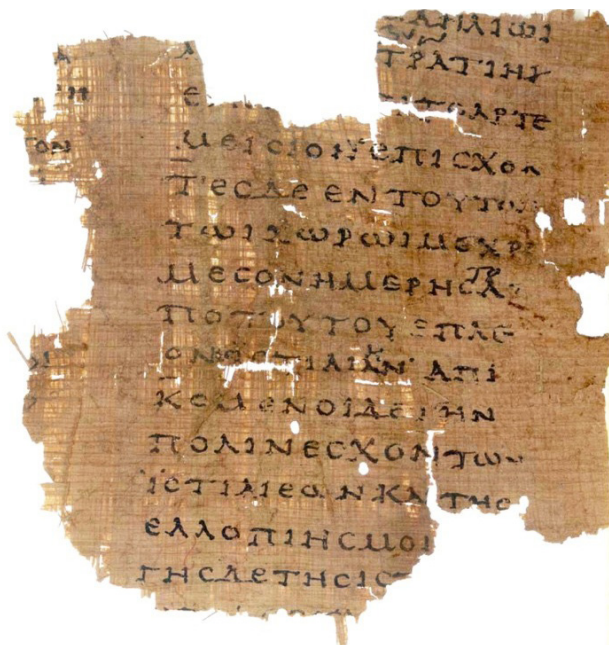 ΑΗΛΙΩΙ
ΤΡΑΤΙΗΗ
ΤΟΑΡΤΕ
ΜΕΙСΙΟΝ ΕΠΙСΧΟΝ
ΤΕСΔΕ ΕΝ ΤΟΥΤΩ
ΤΩΙΧΩΡΩΙΜΕΧΡΙ
ΜΕСΟΝΗΜΕΡΗСΑ
ΠΟΤΟΥΤΟΥΕΠΛΕ
ΟΝ ΙСΤΙΑΙΑΝ ΑΠΙ
ΚΟΜΕΝΟΙΔΕΤΗΝ
ΠΟΛΙΝΕСΧΟΝΤΩΝ
ΙСΤΙΑΙΕΩΝΚΑΙΤΗС
ΕΛΛΟΠΙΗСΜΟΙ
ΓΗСΔΕΤΗСΙС